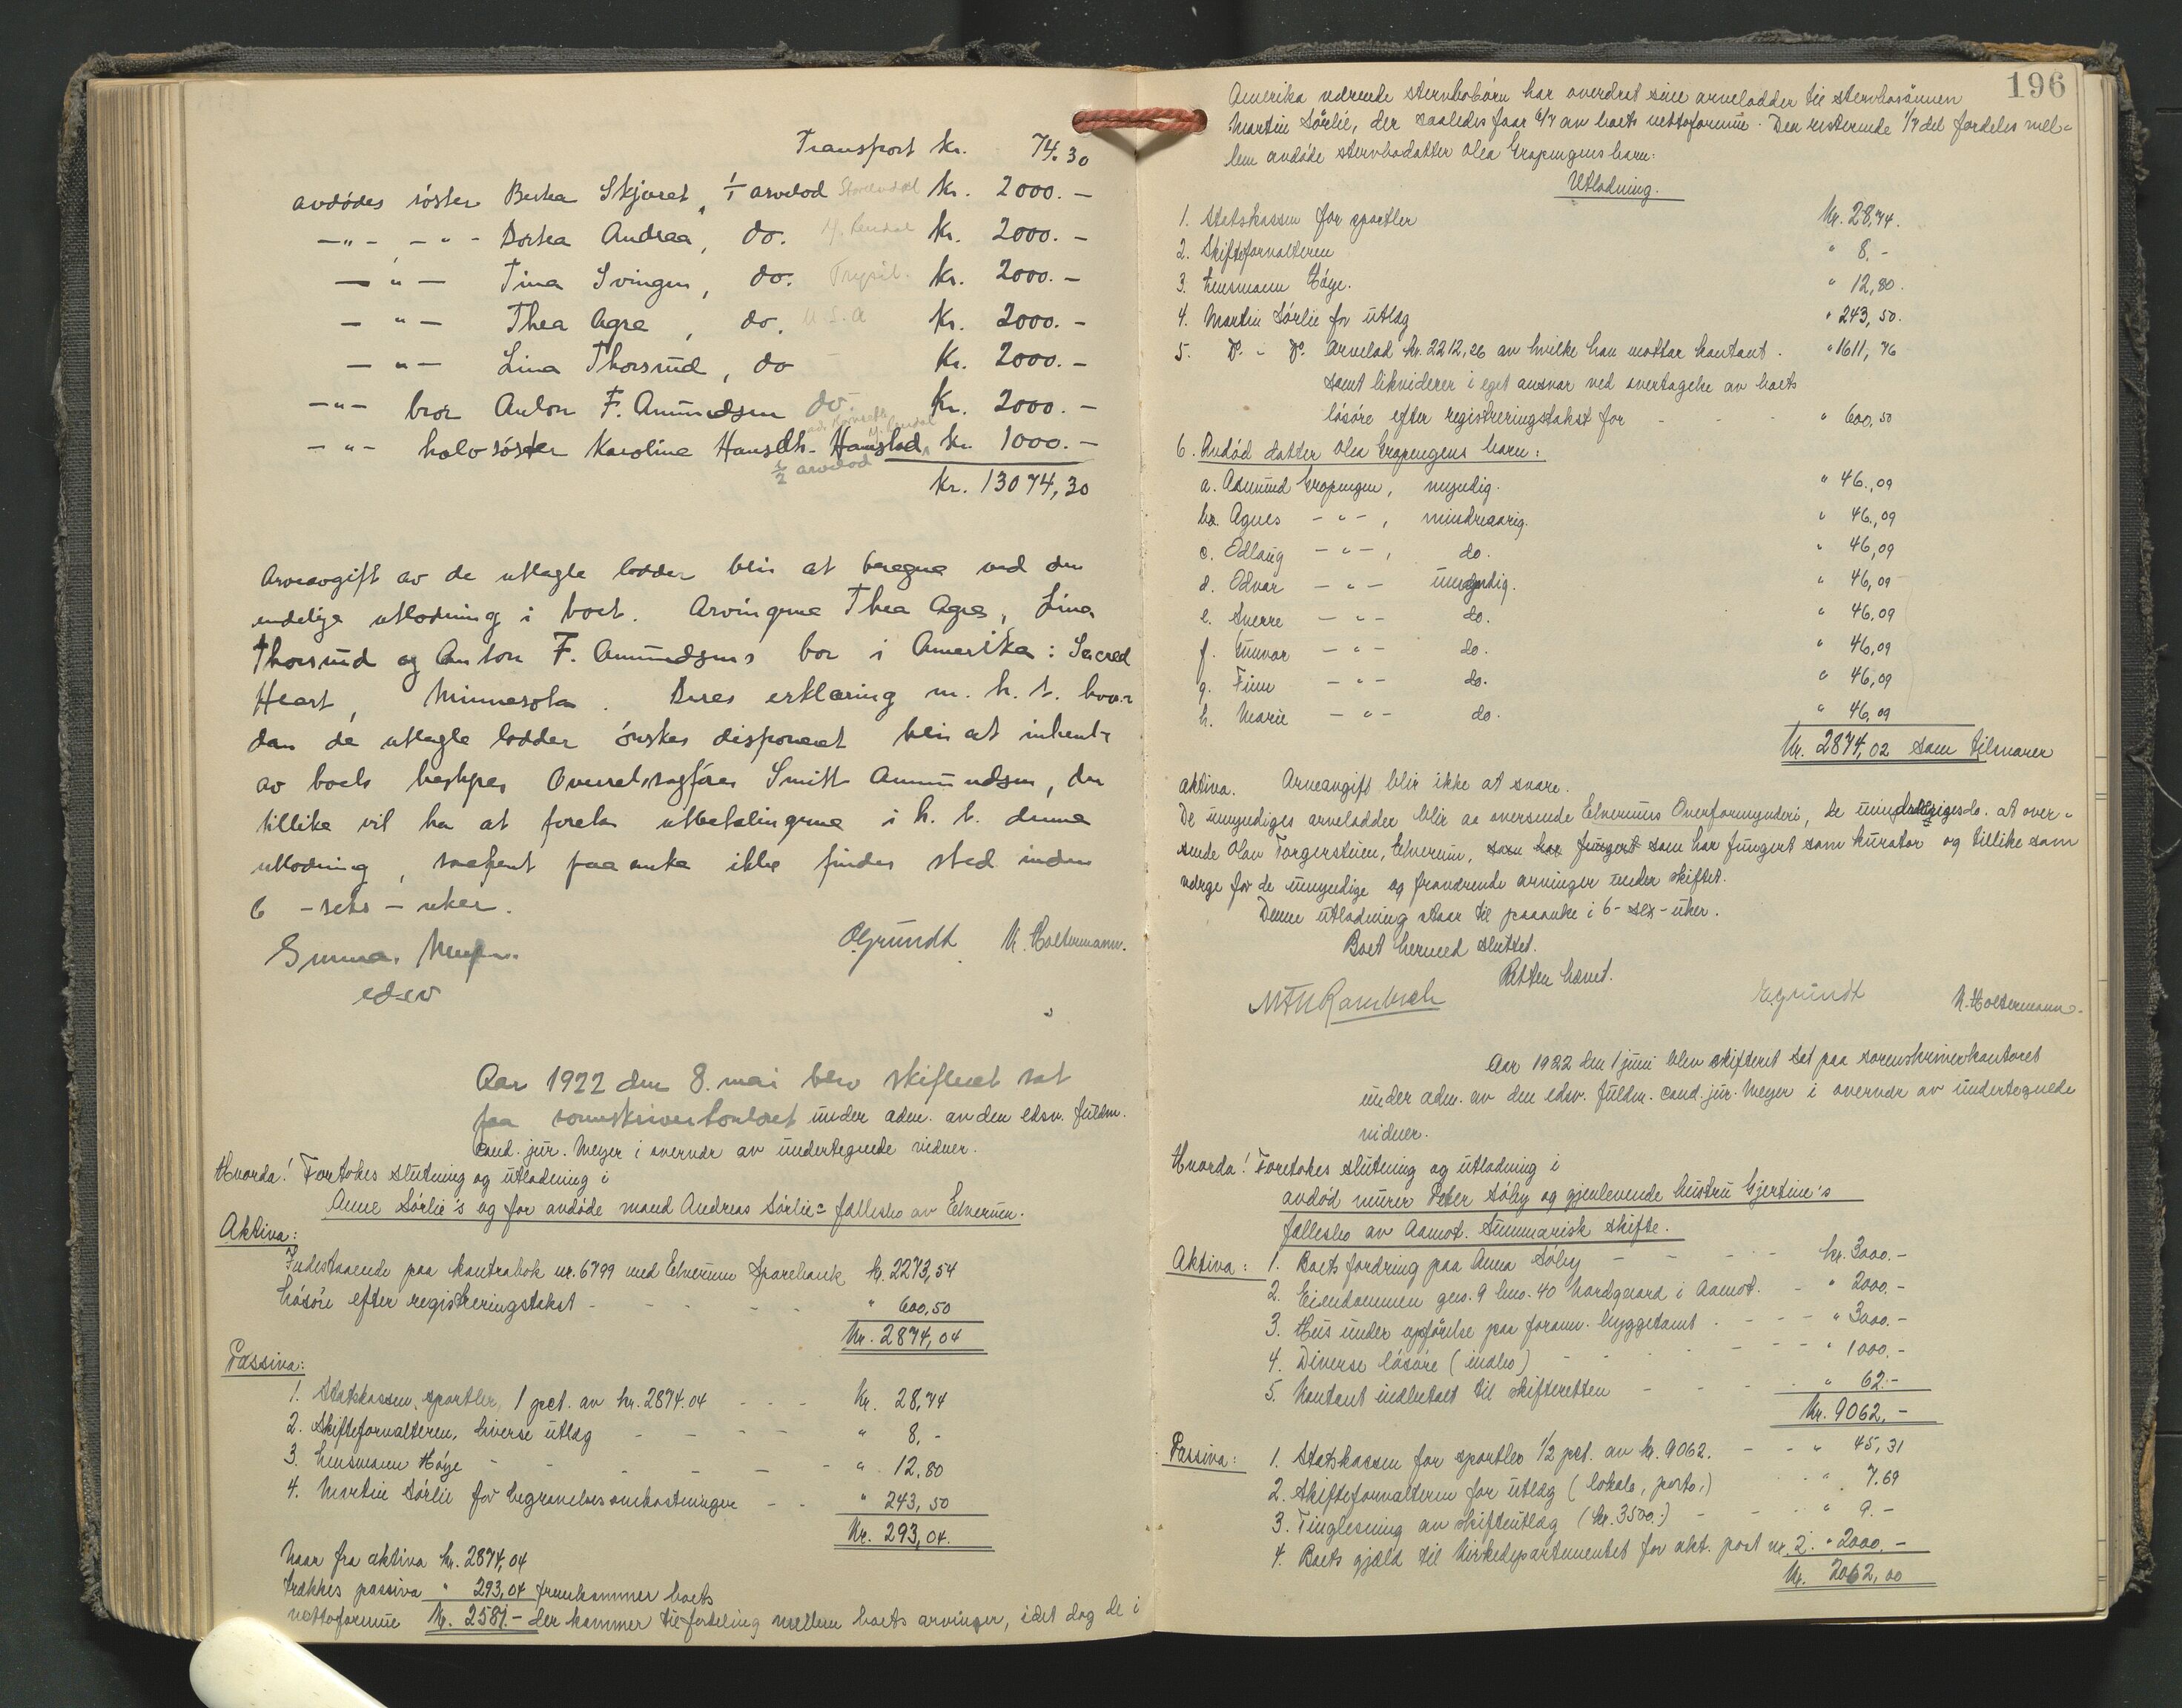 Transport kr. 74.30
avdødes søster Berthea Skjæret, 1/1 arvelod Storelvdal kr. 2000.-
-"- -"- Dorthea Andraa, do. Y. Rendal kr. 2000.-
-"- Tina Svingen, do. Trysil. kr. 2000.-
-"- Thea Agre, do. U.S.A kr. 2000.-
-"- Lina Thorsrud, do kr. 2000.-
-"- bror Anton F. Amundsen do. kr. 2000.-
Y. Rendal
-"- halvsøster Karoline Hansdt. Hanestad, kr. 1000.-
1/2 arvelod
kr. 13074,30
Arveavgift av de utlagte lodder blir at beregne ved den
endelige utlodning i boet. Arvingerne Thea Agre, Lina
Thorsrud og Anton F. Amundsens bor i Amerika: Sacred
Heart, Minnesota. Deres erklæring m. h. t. hvor-
dan de utlagte lodder ønskes disponeret blir at inhent-
av boets bestyrer Overretssagfører Smitt Amundsen, der
tillike vil ha at foreta utbetalingerne i h. t. denne
utlodning, saafremt paaanke ikke finder sted inden
6 -seks- uker.
E. Grundt K. Holtermann.
edsv
Aar 1922 den 8. mai blev skifteret sat
paa sorenskriverkontoret under adm. av den edsv. fuldm.
cand. jur. Meyer i overvær av undertegnede vidner.
Hvorda! Foretokes slutning og utlodning i
Anne Sørlie's og før avdøde mand Andreas Sørlie's fællesbo av Elverum.
Aktiva:
Indestaaende paa kontrabok nr. 6799 med Elverum Sparebank kr. 2273,54
Løsøre efter registreringstakst - - - - " 600,50
Kr. 2874,04
Passiva:
1. Statskassen, sportler, 1 pct. av kr. 2874.04 - - - Kr. 28,74
2. Skifteforvalteren, diverse utlæg - - - - " 8,-
3. Lensmann Høye - - - - - " 12,80
4. Martin Sørlie for begravelsesomkostninger - - " 243,50
Kr. 293,04.
Naar fra aktiva kr. 2874,04
trækkes passiva " 293,04 fremkommer boets
nettoformue Kr. 2581.- der kommer til fordeling mellem boets arvinger, idet dog de i
196
Amerika værende stervbobørn har overdret sine arvelodder til stervbosønnen
Martin Sørlie, der saaledes faar 6/7 av boets nettoformue. Den resterende 1/7 del fordeles mel-
lem avdøde stervbodatter Olea Grapengens barn:
Utlodning.
1. Statskassen for sportler Kr. 28,74.
2. Skifteforvalteren " 8.-
3. Lensmann Høye. " 12,80.
4. Martin Sørlie for utlæg " 243,50.
5. Do. - Do. Arvelod kr. 2212,26 av hvilke han mottar kontant. " 1611,76
samt likviderer i eget ansvar ved overtagelse av boets
løsøre efter registreringstakst for - - - " 600,50
6. Avdød datter Olea Grapengens barn:
a. Asmund Grapengen, myndig. " 46,09
b. Agnes -"-, mindreaarig. " 46,09
c. Odlaug -"-, do. " 46,09
d. Odvar -"- umyndig. " 46,09
e. Sverre -"- do. " 46,09
f. Gunvor -"- do. " 46,09
g. Finn -"- do. " 46,09
h. Marie -"- do. " 46,09
Kr. 2874,02 som tilsvarer
aktiva. Arveavgift blir ikke at svare.
De umyndiges arvelodder blir at oversende Elverums Overformynderi, de mindreaariges do. at over-
sende Olav Torgersturen, Elverum, som har fungert som har fungert som kurator og tillike som
værge for de umyndige og fraværende arvinger under skiftet.
Denne utlodning staar til paaanke i 6-sex-uker.
Boet hermed sluttet.
Retten hævet.
E. Grundt K. Holtermann.
Aar 1922 den 1 juni blev skifteret sat paa sorenskriverkontoret
under adm. av den edsv. fuldm. cand. jur. Meyer i overvær av undertegnede
vidner.
Hvorda! Foretokes slutning og utlodning i
avdød murer Peter Søby og gjenlevende hustru Gjertine's
fællesbo av Aamot. Summarisk skifte.
Aktiva: 1. Boets fordring paa Anna Søby - - - - kr. 3000.-
2. Eiendommen gno. 9 bno. 40 Nordgaard i Aamot. - " 2000.-
3. Hus under opførelse paa foranv. byggetomt. - - - " 3000.-
4. Diverse løsøre (indbo) - - - - - - " 1000.-
5. Kontant indbetalt til skifteretten - - - - " 62.-
Kr. 9062,-
Passiva: 1. Statskassen for sportler 1/2 pct. av kr. 9062. - - " 45,31
2. Skifteforvalteren for utlæg (lokale, porto,) " 7.69
3. Tinglesning av skifteutlæg (kr. 3500.-) - - - " 9.-
4. Boets gjæld til Kirkedepartementet for akt. post nr. 2. " 2000.-
Kr. 2062,00